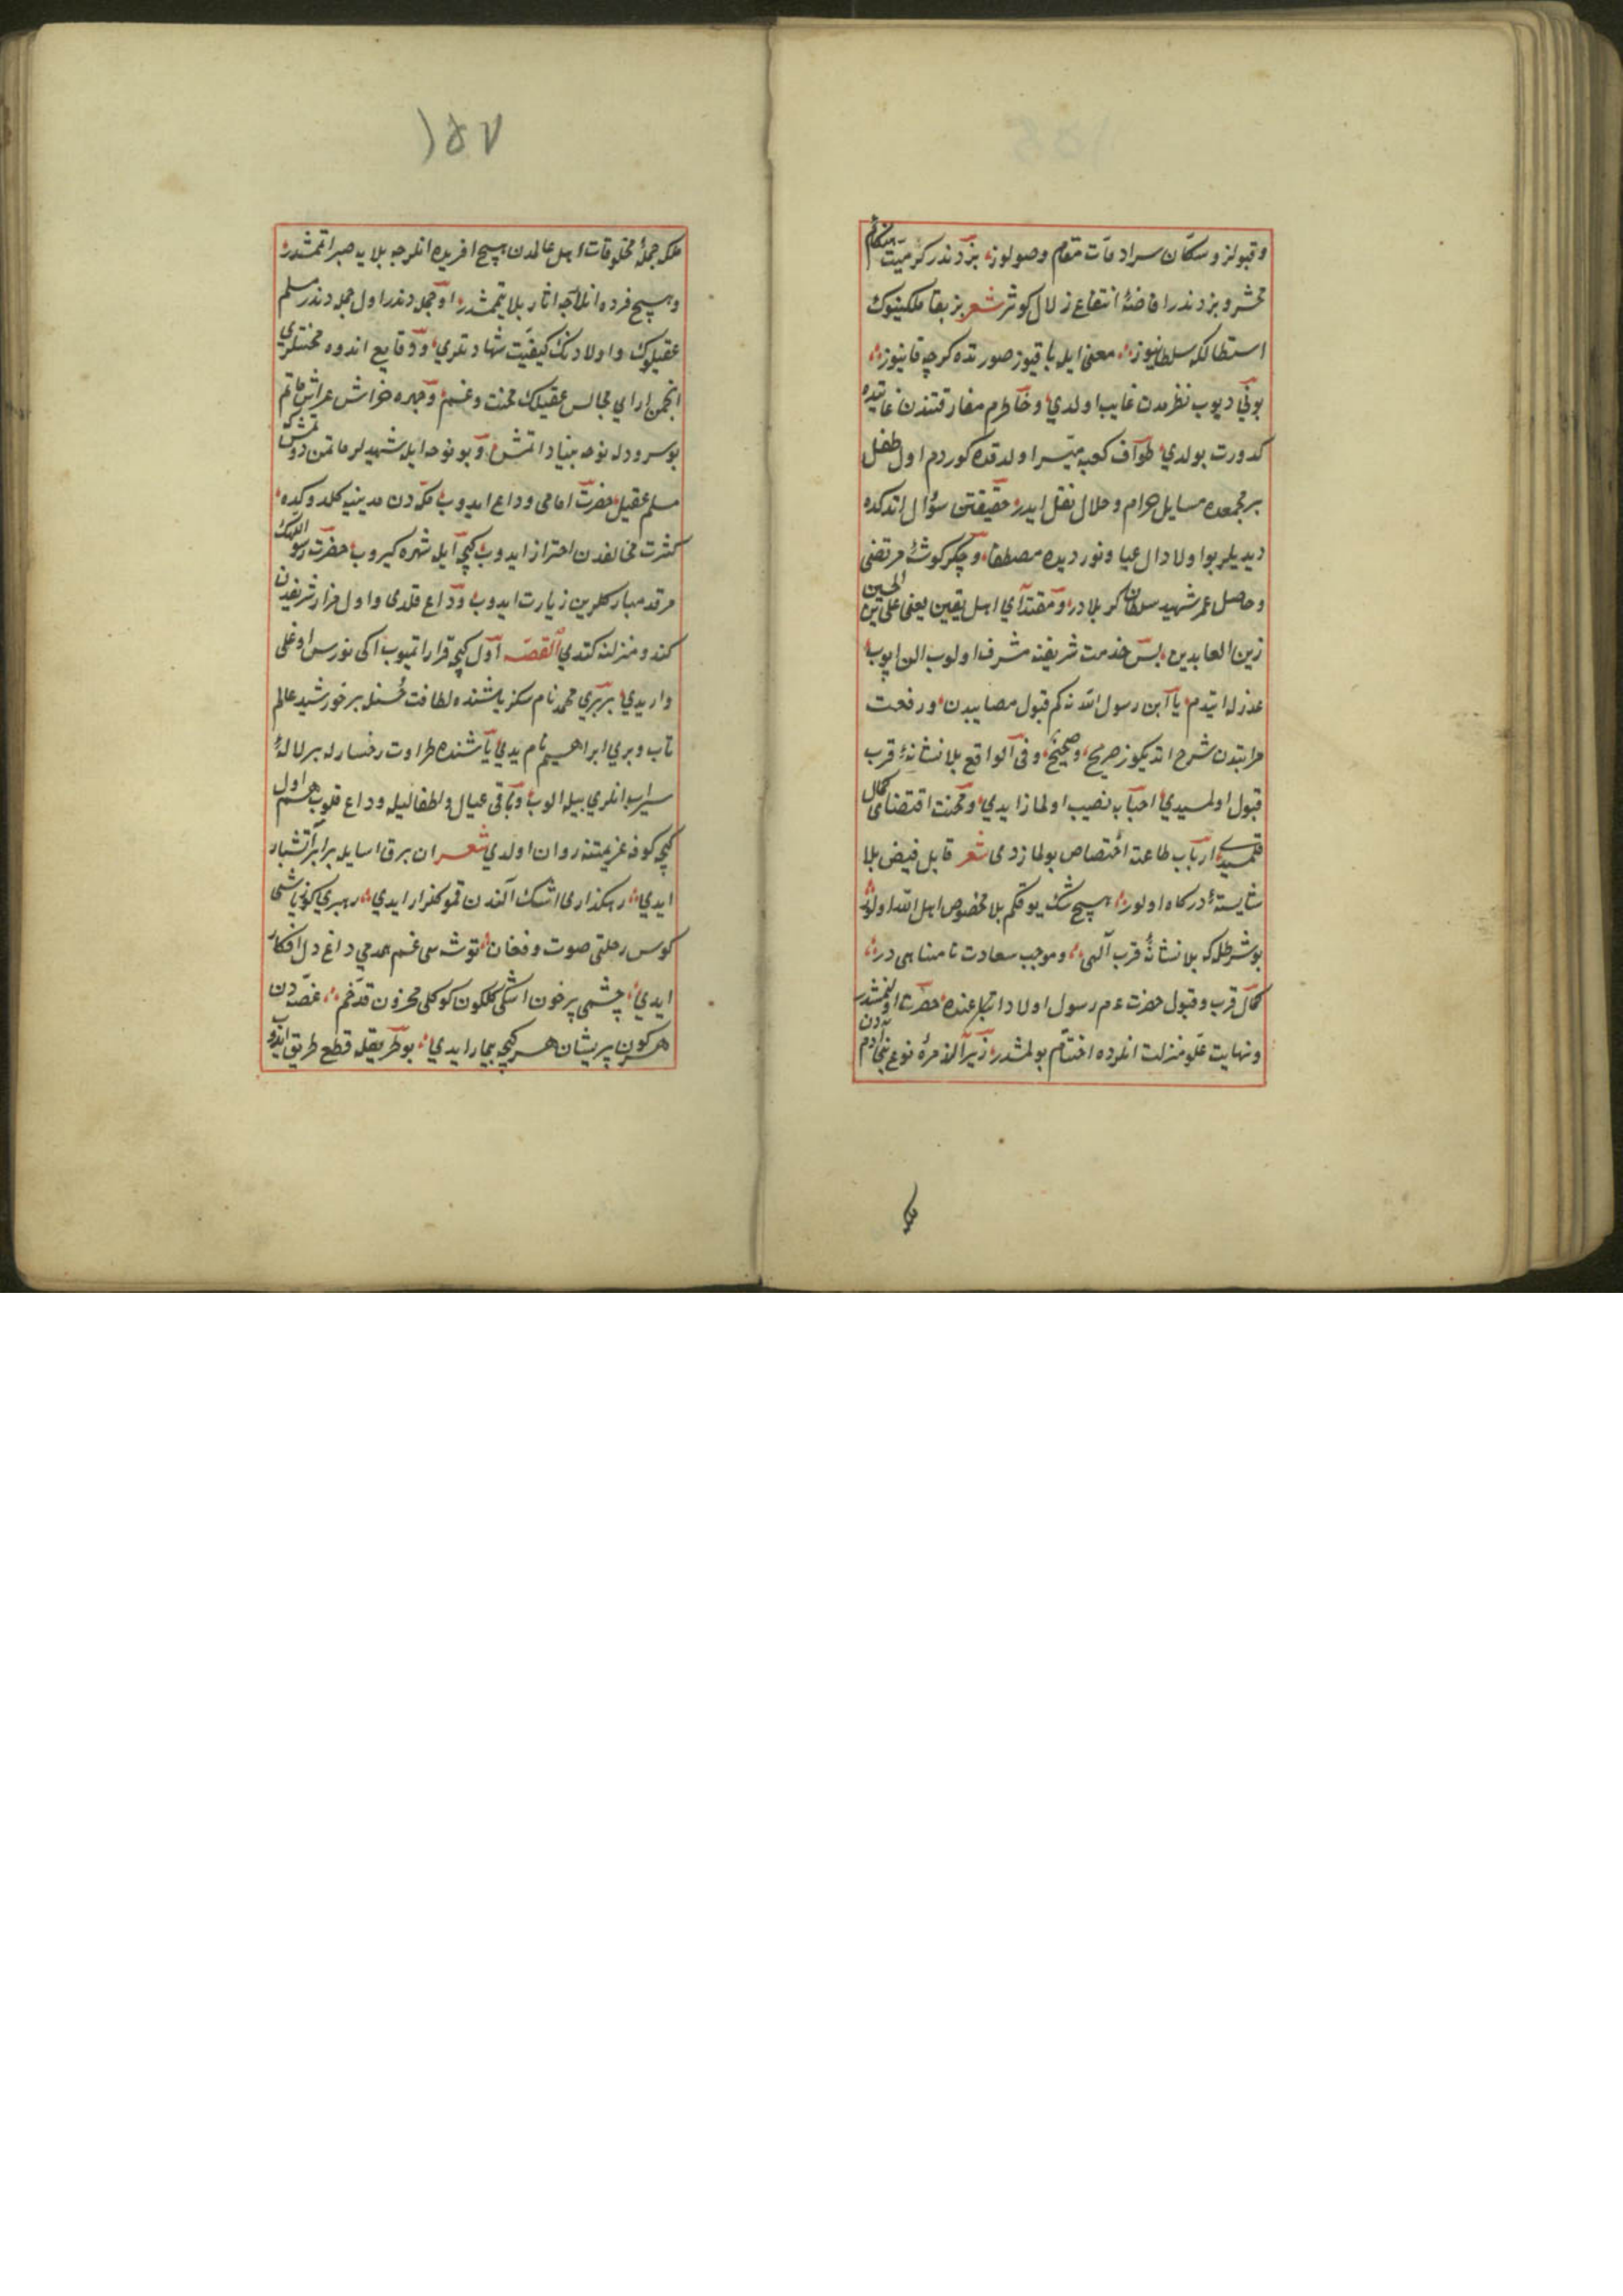 وقبولز و سكان سرادقات مقام وصولوز، بزدندر كرميت هنكامهٔ
محشر و بزدندر افاضهٔ انتفاع زلال كوثر شعر بز بقا ملكينوك
استطالكه سلطانيوز ؞ معنى ايله باقيوز صورتده كرچه فانيوز ؞
بونى ديوب نظرمدن غايب اولدى، وخاطرم مفارقتندن غايتده
كدورت بولدى، طواف كعبه ميسر اولدقده كوردم اول طفل
بر مجمعده مسايل حرام و حلال نقل ايدر، حقيقتن سؤال اتدكده
ديديلر بو اولاد ال عبا و نور ديده مصطفا، و جكر كوشهٔ مرتضى
و حاصل عمر شهيد سلطان كربلادر، و مقتداى اهل يقين يعنى على بن الحسين
زين العابدين، پس خدمت شريفنه مشرف اولوب الن اپوب
عذرله ايتدم يا ابن رسول الله نه كم قبول مصايبدن، و رفعت
مراتبدن شرح اتديكوز صريح، و صحيح، و فى الواقع بلا نشانهٔ قرب
قبول اولمسيدى، احبابه نصيب اولمازايدى، و محنت اقتضاى كمال
قلمسيدى، ارباب طاعته اختصاص بولمازدى شعر قابل فيض بلا
شايستهٔ دركاه اولور ؞ هيچ شك يوقكم بلا مخصوص اهل الله اولور
بو شرطله كه بلا نشانهٔ قرب آلهى ؞ و موجب سعادت نا متناهى در ؞
كمال قرب و قبول حضرت عم رسول اولاد اتباعنده حضرت اولنمشدر
و نهايت علو منزلت انلرده اختتام بولمشدر، زيرا الزمرهٔ نوع بنى آدمدن
بلكه
١٥٧
بلكه جملهٔ مخلوقات اهل عالمدن هيچ افريده انلرجه بلايه صبر اتممشدر،
و هيچ فرده انلرجه اثار بلا يتممشدر، او جمله دندر اول جمله دندر مسلم
عقيلوك و اولادنك كيفيت شهادتلرى، و وقايع اندوه محنتلرى
انجمن اراى مجالس عقيلك محنت و غم، و چهره خراش عرايش ماتم
بو سرودله نوحه بنياد اتمش، و بو نوحه ايله شهيدلر ماتمن دوتمش كه
مسلم عقيل حضرت امامى وداع ايدوب مكه دن مدينيه كلدوكده،
كثرت مخالفدن احتراز ايدوب، كيجه ايله شهره كيروب، حضرت رسول اللهك
مرقد مباركلرين زيارت ايدوب و وداع قلدى و اول مزار شريفدن
كندو منزلنه كتدى القصه اول كيجه قرار اتميوب، اكى نورس اوغلى
واريدى، بربرى محمد نام سكز ياشنده لطافت حسنله بر خورشيد عالم
تاب و برى ابراهيم نام يدى ياشنده طراوت رخسارله بر لالهٔ
سيراب انلرى بيله الوب، و باقى عيال و اطفاليله وداع قلوب هم اول
كيجه كوفه عزيمتنه روان اولدى شعر ان برق اسايله برابر آتشبار
ايدى ؞ رهكذارى اشك آلندن قمو كلزار ايدى ؞ رهبرى كوز ياشى
كوس رحلتى صوت و فغان، توشه سى غم همدمى داغ دل افكار
ايدى ؞ چشمى پرخون اشكى كلكون كوكلى محزون قدى خم ؞ غصه دن
هر كون پريشان هر كيجه بيمار ايدى ؞ بو طريقله قطع طريق ايدوب